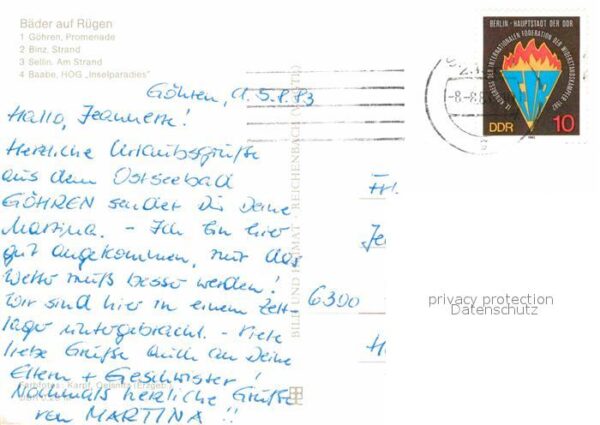 Bäder auf Rügen
1 Göhren, Promenade
2 Binz, Strand
3 Sellin, Am Strand
4 Baabe, HOG „Inselparadies"
BERLIN - HAUPTSTADT DER DDR
IX. KONGRESS DER INTERNATIONALEN FÖDERATION DER WIDERSTANDSKÄMPFER
FIR
DDR 10
-8-8.8
Göhren, d. 5.8.83
Hallo, Jeannette!
Herzliche Urlaubsgrüße
aus dem Ostseebad
GÖHREN sendet Dir Deine
Martina. - Ich bin hier
gut angekommen, nur das
Wetter muß besser werden!
Wir sind hier in einem Zelt-
lager untergebracht. - Viele
liebe Grüße auch an Deine
Eltern + Geschwister!
Nochmals herzliche Grüße
von MARTINA!!
BILD UND HEIMAT · REICHENBACH
Frl
Je
6300
H
privacy protection
Datenschutz